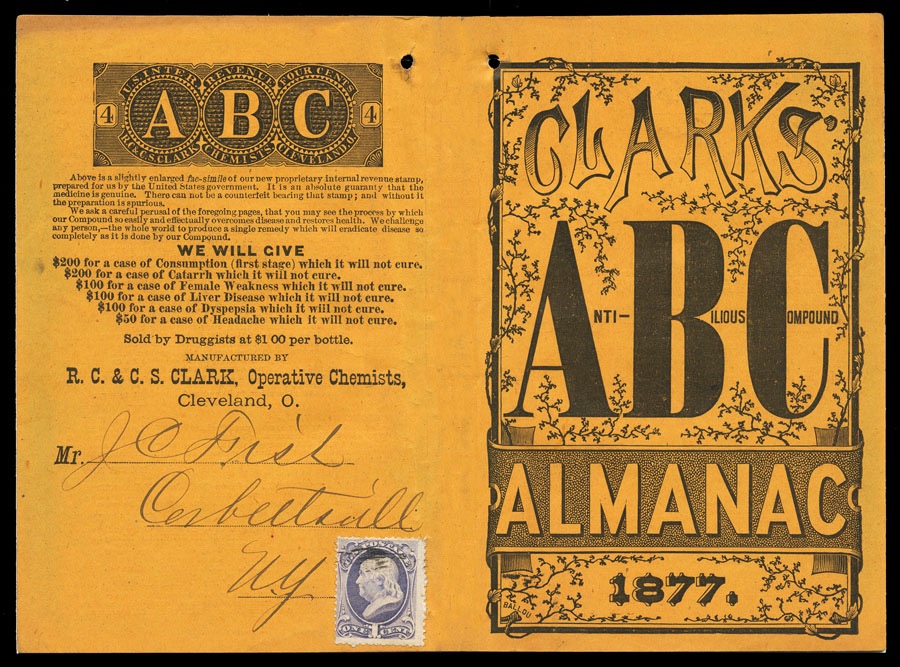 U.S. INTER REVENUE FOUR CENTS
4 A B C 4
R.C.& C.S. CLARK CHEMISTS CLEVELAND, O.
Above is a slightly enlarged fac-simile of our new proprietary internal revenue stamp,
prepared for us by the United States government. It is an absolute guaranty that the
medicine is genuine. There can not be a counterfeit bearing that stamp; and without it
the preparation is spurious.
We ask a careful perusal of the foregoing pages, that you may see the process by which
our Compound so easily and effectually overcomes disease and restores health. We challenge
any person,—the whole world to produce a single remedy which will eradicate disease so
completely as it is done by our Compound.
WE WILL GIVE
$200 for a case of Consumption (first stage) which it will not cure.
$200 for a case of Catarrh which it will not cure.
$100 for a case of Female Weakness which it will not cure.
$100 for a case of Liver Disease which it will not cure.
$100 for a case of Dyspepsia which it will not cure.
$50 for a case of Headache which it will not cure.
Sold by Druggists at $1 00 per bottle.
MANUFACTURED BY
R. C. & C. S. CLARK, Operative Chemists,
Cleveland, O.
Mr. J C Frish
Corbettsvill
NY
ONE CENT
CLARKS'
ABC
ANTI-BILIOUS COMPOUND
ALMANAC
1877.
BALLOU